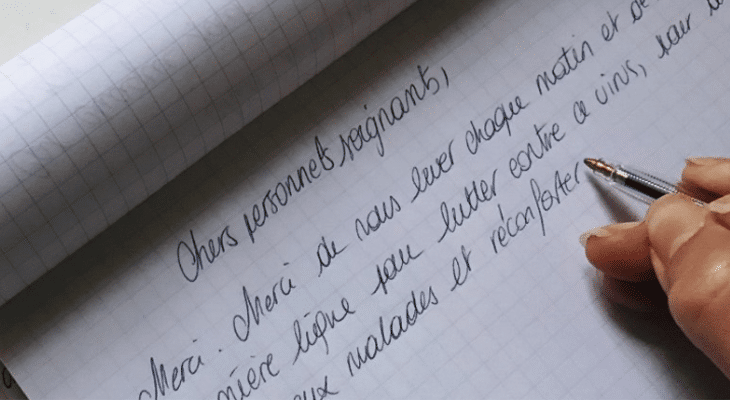 Chers personnels soignants,
Merci. Merci de vous lever chaque matin et de
mière ligne pour lutter contre ce virus, pour
eux malades et réconforter